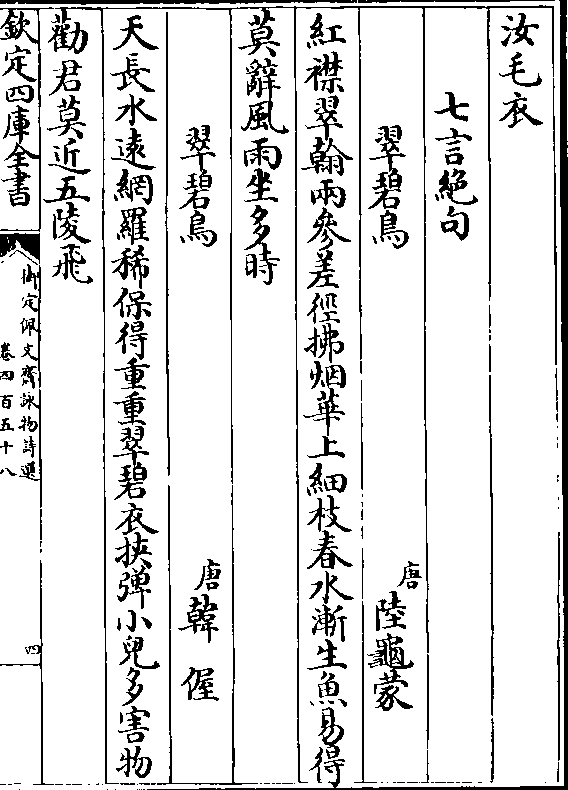 汝毛衣
七言絶句
翠碧鳥 唐陸龜蒙
紅襟翠翰兩參差徑拂烟華上細枝春水漸生魚易得
莫辭風雨坐多時
翠碧鳥 唐韓偓
天長水遠網羅稀保得重重翠碧衣挾彈小兒多害物
勸君莫近五陵飛
欽定四庫全書
御定佩文齋詠物詩選
卷四百五十八
四